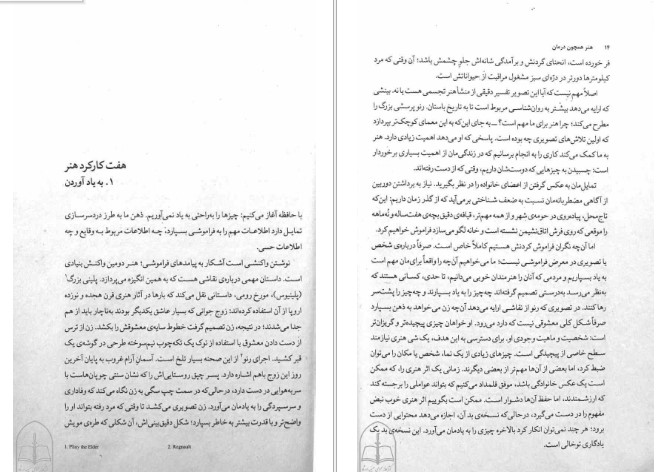 هفت کارکرد هنر
۱. به یاد آوردن
با حافظه آغاز می‌کنیم: چیزها را به‌راحتی به یاد نمی‌آوریم. ذهن ما به طرز دردسرسازی
تمایل دارد اطلاعات مهم را به فراموشی بسپارد، چه اطلاعات مربوط به وقایع و چه
اطلاعات حسی.
نوشتن واکنشی است آشکار به پیامدهای فراموشی؛ هنر دومین واکنش بنیادی
است. داستان مهمی درباره‌ی نقاشی هست که به همین انگیزه می‌پردازد. پلینی بزرگ۱
(پلینیوس)، مورخ رومی، داستانی نقل می‌کند که بارها در آثار هنری قرن هجده و نوزده
اروپا از آن استفاده کرده‌اند: زوج جوانی که بسیار عاشق یکدیگر بودند به‌ناچار باید از هم
جدا می‌شدند؛ در نتیجه، زن تصمیم گرفت خطوط سایه‌ی معشوقش را بکشد. زن از ترس
از دست دادن معشوق با استفاده از نوک یک تکه‌چوب نیم‌سوخته طرحی در گوشه‌ی یک
قبر کشید. اجرای رنو۲ از این صحنه بسیار تلخ است. آسمان آرام غروب به پایان آخرین
روز این زوج باهم اشاره دارد. پسر چپق روستایی‌اش را که نشان سنتی چوپان‌هاست با
سربه‌هوایی در دست دارد، درحالی‌که در سمت چپ سگی به زن نگاه می‌کند که وفاداری
و سرسپردگی را به یادمان می‌آورد. زن تصویری می‌کشد تا وقتی که مرد رفته بتواند او را
واضح‌تر و با قدرت بیشتر به خاطر بسپارد؛ شکل دقیق بینی‌اش، آن شکلی که طره‌ی مویش
1. Pliny the Elder
2. Regnault
۱۴ هنر همچون درمان
فر خورده است، انحنای گردنش و برآمدگی شانه‌اش جلو چشمش باشد؛ آن وقتی که مرد
کیلومترها دورتر در دره‌ای سبز مشغول مراقبت از حیواناتش است.
اصلاً مهم نیست که آیا این تصویر تفسیر دقیقی از منشأ هنر تجسمی هست یا نه. بینشی
که ارایه می‌دهد بیشتر به روان‌شناسی مربوط است تا به تاریخ باستان. رنو پرسشی بزرگ را
مطرح می‌کند؛ چرا هنر برای ما مهم است؟ ــ به جای این‌که به این معمای کوچک‌تر بپردازد
که اولین تلاش‌های تصویری چه بوده است. پاسخی که او می‌دهد اهمیت زیادی دارد. هنر
به ما کمک می‌کند کاری را به انجام برسانیم که در زندگی‌مان از اهمیت بسیاری برخوردار
است؛ چسبیدن به چیزهایی که دوست‌شان داریم، وقتی که از دست رفته‌اند.
تمایل‌مان به عکس گرفتن از اعضای خانواده را در نظر بگیرید. نیاز به برداشتن دوربین
از آگاهی مضطربانه‌مان نسبت به ضعف شناختی برمی‌آید که از گذر زمان داریم: این‌که
تاج‌محل، پیاده‌روی در حومه‌ی شهر و از همه مهم‌تر، قیافه‌ی دقیق بچه‌ی هفت‌ساله و نُه‌ماهه
را موقعی که روی فرش اتاق‌نشیمن نشسته است و خانه لگویی می‌سازد فراموش خواهیم کرد.
اما آن‌چه نگران فراموش کردنش هستیم کاملاً خاص است. صرفاً درباره‌ی شخص
یا تصویری در معرض فراموشی نیست؛ ما می‌خواهیم آن‌چه را واقعاً برای‌مان مهم است
به یاد بسپاریم و مردمی که آنان را هنرمندان خوبی می‌دانیم، تا حدی، کسانی هستند که
به‌نظر می‌رسد به‌درستی تصمیم گرفته‌اند چه‌چیز را به یاد بسپارند و چه‌چیز را پشت‌سر
رها کنند. تصویری که رنو از نقاشی ارایه می‌دهد آن‌چه زن می‌خواهد به ذهن بسپارد
صرفاً شکل کلی معشوقی نیست که دارد می‌رود. او خواهان چیزی پیچیده‌تر و گریزان‌تر
است: شخصیت و ماهیت وجودی او. برای دسترسی به این هدف، یک شیء هنری نیازمند
سطح خاصی از پیچیدگی است. چیزهای زیادی از یک نما، شخص یا مکان را می‌توان
ضبط کرد، اما بعضی از آن‌ها مهم‌تر از بعضی دیگرند. زمانی یک اثر هنری را، که ممکن
است یک عکس خانوادگی باشد، موفق قلمداد می‌کنیم که بتواند عواملی را برجسته کند
که ارزشمندند، اما حفظ آن‌ها دشوار است. ممکن است بگوییم اثر هنری خوب نبض
مفهوم را در دست می‌گیرد، درحالی‌که نسخه‌ی بد آن، اجازه می‌دهد محتوایی از دست
برود؛ هر چند نمی‌توان انکار کرد بالاخره چیزی را به یادمان می‌آورد. این نسخه‌ی بد یک
یادگاری توخالی است.